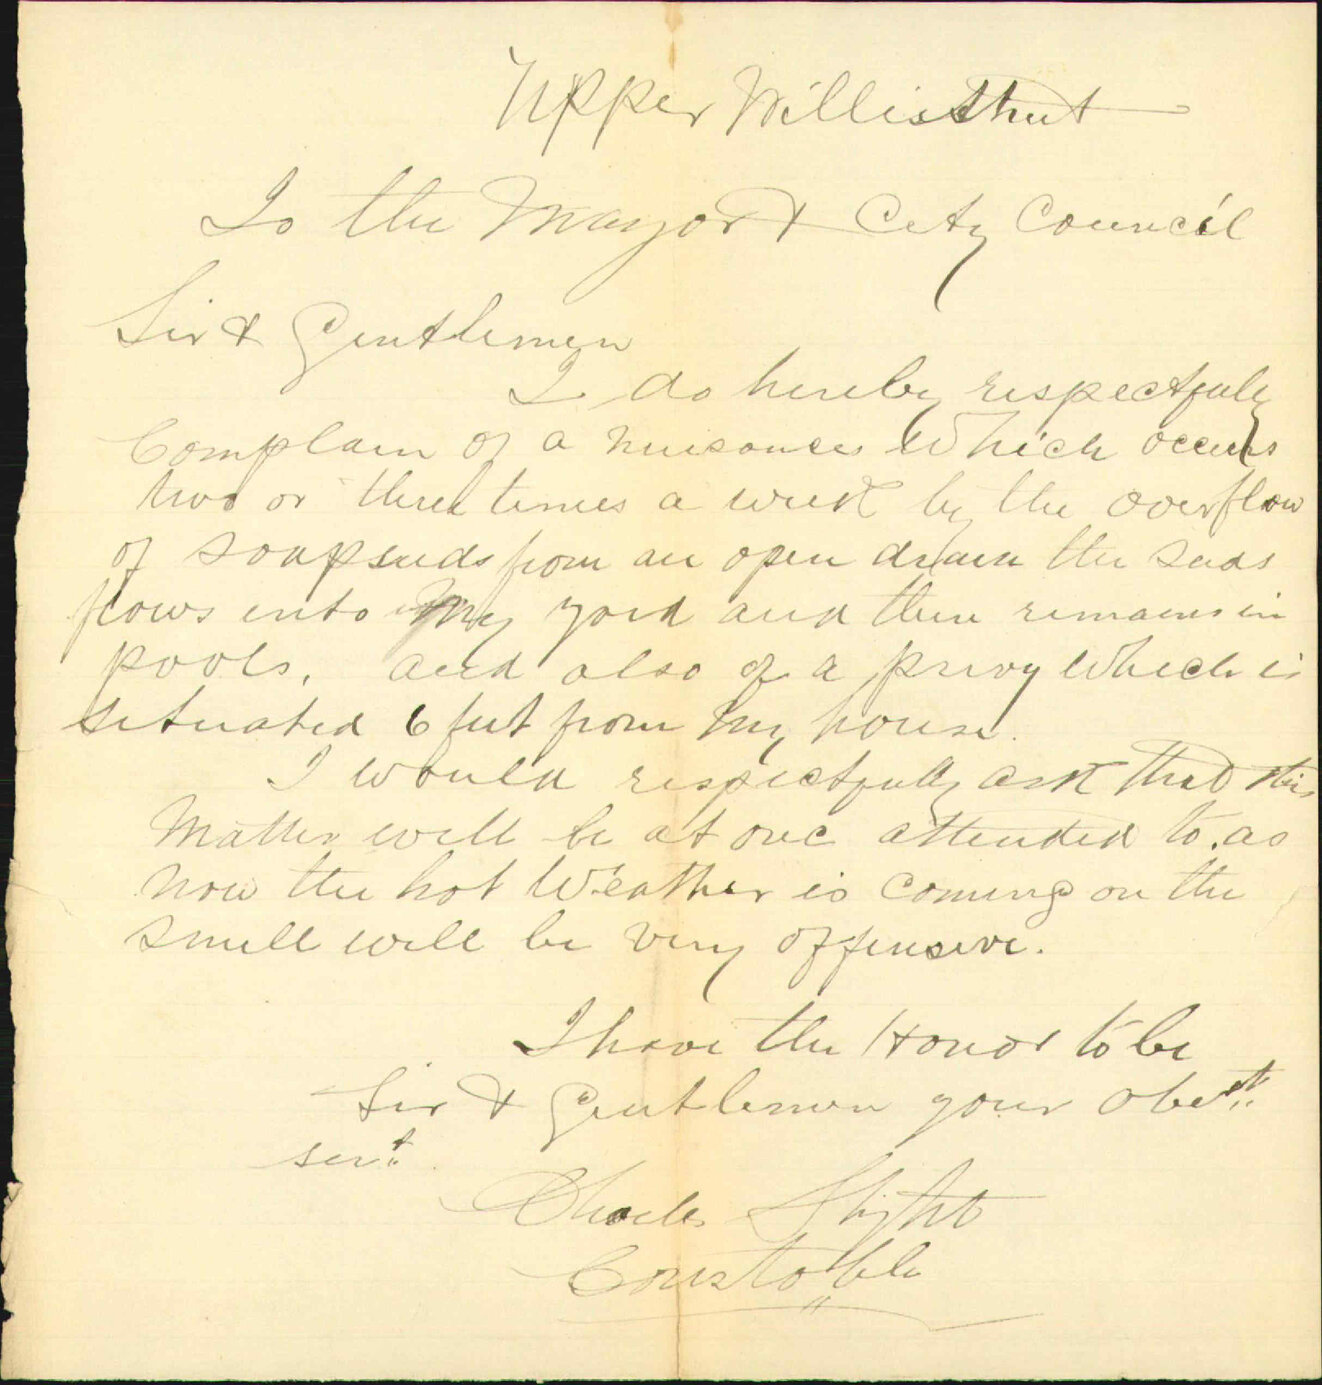 Upper Willis Street
To the Mayor & City Council
Sir & Gentlemen
I do hereby respectfuly
Complain of a nuisance Which occurs
two or three times a week by the overflow
of soapsuds from an open drain the suds
flows into My yard and there remains in
pools, and also of a privy Which is
situated 6 feet from my house.
I would respectfully ask that this
Matter will be at once attended to. as
now the hot Weather is coming on the
smell will be very offensive.
I have the Honor to be
Sir & Gentlemen your obedt
sert
Charles Slight
Constable